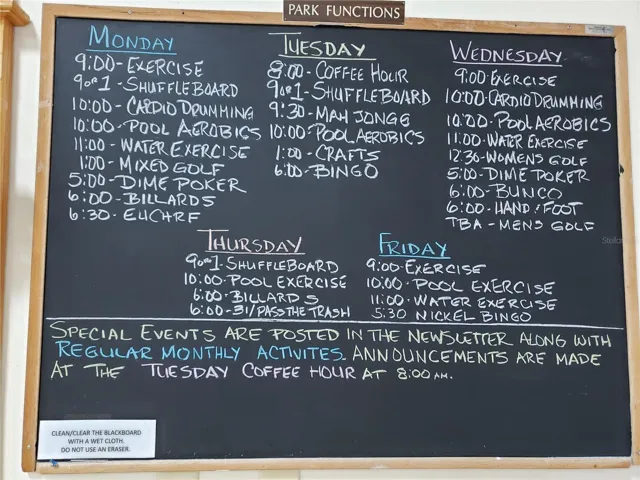 PARK FUNCTIONS
MONDAY
9:00-EXERCISE
9 OR 1-SHUFFLEBOARD
10:00-CARDIO DRUMMING
10:00-POOL AEROBICS
11:00-WATER EXERCISE
1:00-MIXED GOLF
5:00-DIME POKER
6:00-BILLARDS
6:30-EUCHRE
TUESDAY
8:00-COFFEE HOUR
9 OR 1-SHUFFLEBOARD
9:30-MAH JONGG
10:00-POOL AEROBICS
1:00-CRAFTS
6:00-BINGO
WEDNESDAY
9:00-EXERCISE
10:00-CARDIO DRUMMING
10:00-POOL AEROBICS
11:00-WATER EXERCISE
12:30-WOMENS GOLF
5:00-DIME POKER
6:00-BUNCO
6:00-HAND & FOOT
TBA-MENS GOLF
THURSDAY
9 OR 1-SHUFFLEBOARD
10:00-POOL EXERCISE
6:00-BILLARDS
6:00-31/PASS THE TRASH
FRIDAY
9:00-EXERCISE
10:00-POOL EXERCISE
11:00-WATER EXERCISE
5:30 NICKEL BINGO
SPECIAL EVENTS ARE POSTED IN THE NEWSLETTER ALONG WITH
REGULAR MONTHLY ACTIVITES. ANNOUNCEMENTS ARE MADE
AT THE TUESDAY COFFEE HOUR AT 8:00 AM.
CLEAN/CLEAR THE BLACKBOARD
WITH A WET CLOTH.
DO NOT USE AN ERASER.